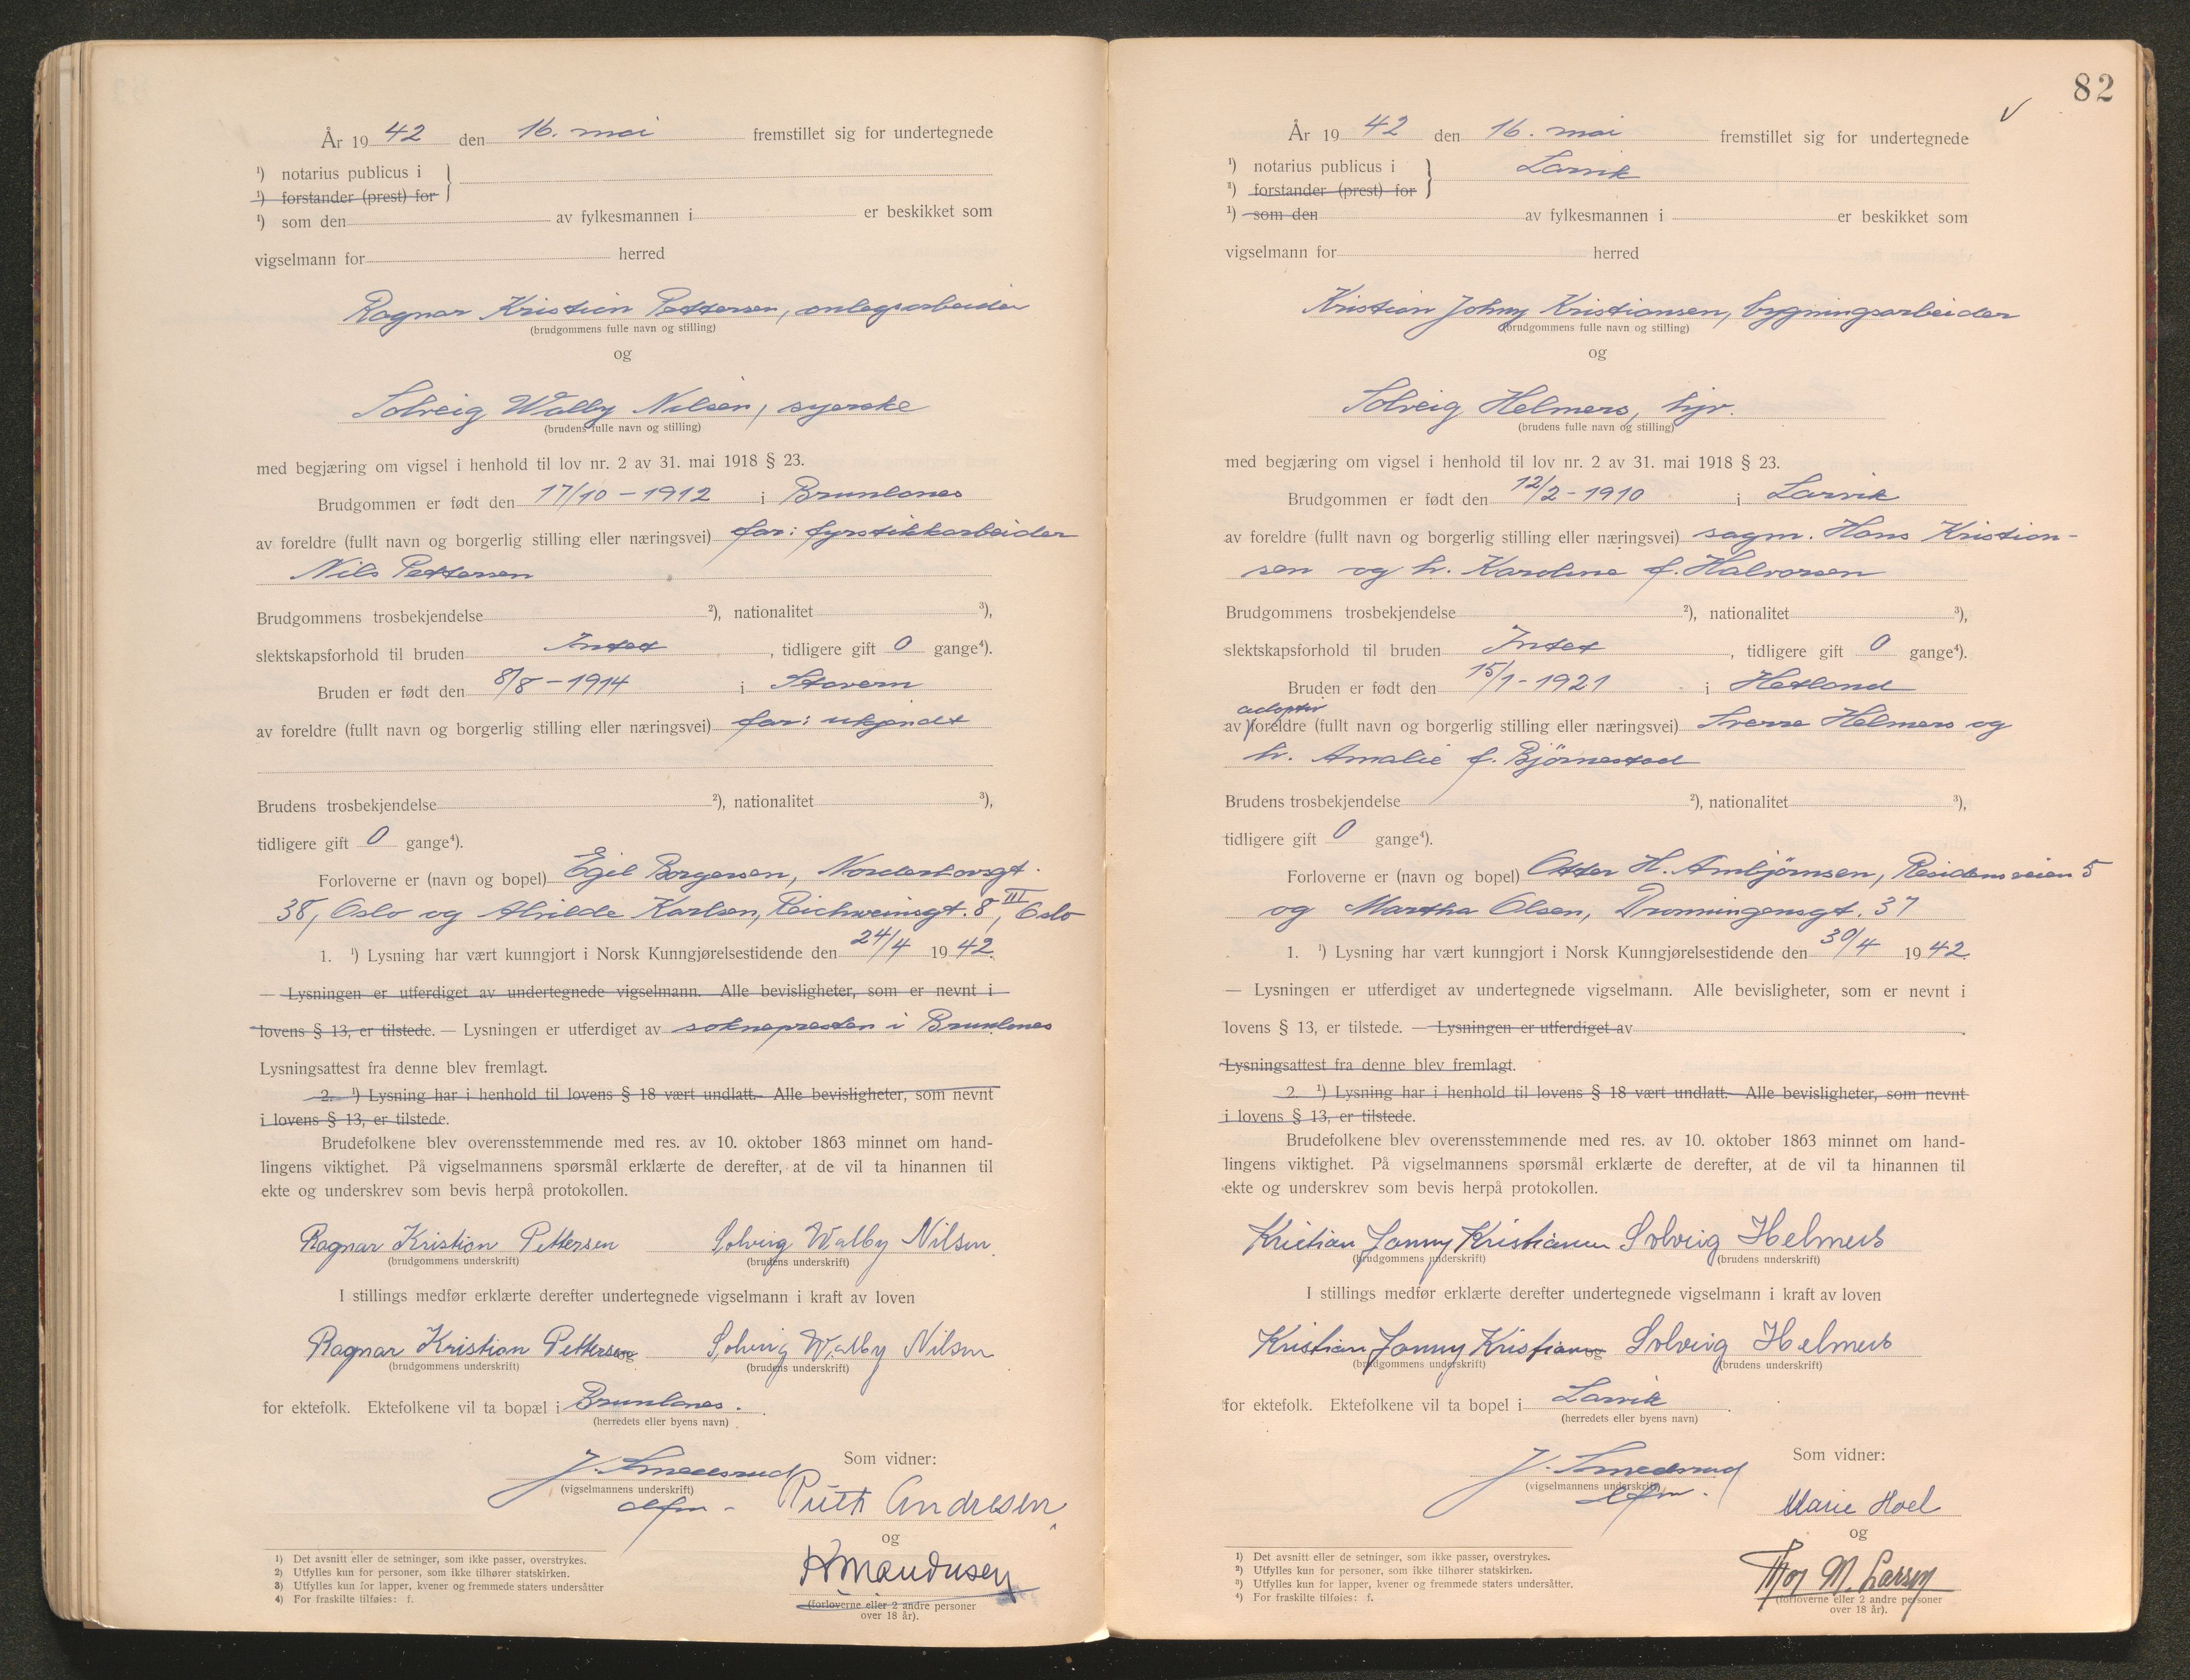 År 19 42 den 16. mai fremstillet sig for undertegnede
¹) notarius publicus i
¹) forstander (prest) for
¹) som den av fylkesmannen i er beskikket som
vigselmann for herred
Ragnar Kristian Pettersen, anlegsarbeider
(brudgommens fulle navn og stilling)
og
Solveig Walby Nilsen, syerske
(brudens fulle navn og stilling)
med begjæring om vigsel i henhold til lov nr. 2 av 31. mai 1918 § 23.
Brudgommen er født den 17/10 - 1912 i Brunlanes
av foreldre (fullt navn og borgerlig stilling eller næringsvei) far: fyrstikkarbeider
Nils Pettersen
Brudgommens trosbekjendelse ²), nationalitet ³),
slektskapsforhold til bruden Intet, tidligere gift 0 gange⁴).
Bruden er født den 8/8 - 1914 i Stavern
av foreldre (fullt navn og borgerlig stilling eller næringsvei) far: ukjendt
Brudens trosbekjendelse ²), nationalitet ³),
tidligere gift 0 gange⁴).
Forloverne er (navn og bopel) Egil Borgersen, Norderhovsgt.
38, Oslo og Alvilde Karlsen, Reichweinsgt. 8 III, Oslo
1. ¹) Lysning har vært kunngjort i Norsk Kunngjørelsestidende den 24/4 19 42.
— Lysningen er utferdiget av undertegnede vigselmann. Alle bevisligheter, som er nevnt i
lovens § 13, er tilstede. — Lysningen er utferdiget av soknepresten i Brunlanes
Lysningsattest fra denne blev fremlagt.
2. ¹) Lysning har i henhold til lovens § 18 vært undlatt. Alle bevisligheter, som nevnt
i lovens § 13, er tilstede.
Brudefolkene blev overensstemmende med res. av 10. oktober 1863 minnet om hand-
lingens viktighet. På vigselmannens spørsmål erklærte de derefter, at de vil ta hinannen til
ekte og underskrev som bevis herpå protokollen.
Ragnar Kristian Pettersen Solveig Walby Nilsen
(brudgommens underskrift) (brudens underskrift)
I stillings medfør erklærte derefter undertegnede vigselmann i kraft av loven
Ragnar Kristian Pettersen og Solveig Walby Nilsen
(brudgommens underskrift) (brudens underskrift)
for ektefolk. Ektefolkene vil ta bopæl i Brunlanes.
(herredets eller byens navn)
Som vidner:
J. Smedsrud
(vigselmannens underskrift)
Ruth Andresen
og
H Mandusen
(forloverne eller 2 andre personer
over 18 år).
1) Det avsnitt eller de setninger, som ikke passer, overstrykes.
2) Utfylles kun for personer, som ikke tilhører statskirken.
3) Utfylles kun for lapper, kvener og fremmede staters undersåtter
4) For fraskilte tilføies: f.
82
År 19 42 den 16. mai fremstillet sig for undertegnede
¹) notarius publicus i Larvik
¹) forstander (prest) for
¹) som den av fylkesmannen i er beskikket som
vigselmann for herred
Kristian Johny Kristiansen, bygningsarbeider
(brudgommens fulle navn og stilling)
og
Solveig Helmers, hjv.
(brudens fulle navn og stilling)
med begjæring om vigsel i henhold til lov nr. 2 av 31. mai 1918 § 23.
Brudgommen er født den 12/2 - 1910 i Larvik
av foreldre (fullt navn og borgerlig stilling eller næringsvei) sagm. Hans Kristian-
sen og h. Karoline f. Halvorsen
Brudgommens trosbekjendelse ²), nationalitet ³),
slektskapsforhold til bruden Intet, tidligere gift 0 gange⁴).
Bruden er født den 15/1 - 1921 i Hetland
av adoptiv foreldre (fullt navn og borgerlig stilling eller næringsvei) Sverre Helmers og
h. Amalie f. Björnestad
Brudens trosbekjendelse ²), nationalitet ³),
tidligere gift 0 gange⁴).
Forloverne er (navn og bopel) Otter H. Ambjørnsen, Residensveien 5
og Martha Olsen, Dronningensgt. 37
1. ¹) Lysning har vært kunngjort i Norsk Kunngjørelsestidende den 30/4 19 42.
— Lysningen er utferdiget av undertegnede vigselmann. Alle bevisligheter, som er nevnt i
lovens § 13, er tilstede. — Lysningen er utferdiget av
Lysningsattest fra denne blev fremlagt.
2. ¹) Lysning har i henhold til lovens § 18 vært undlatt. Alle bevisligheter, som nevnt
i lovens § 13, er tilstede.
Brudefolkene blev overensstemmende med res. av 10. oktober 1863 minnet om hand-
lingens viktighet. På vigselmannens spørsmål erklærte de derefter, at de vil ta hinannen til
ekte og underskrev som bevis herpå protokollen.
Kristian Jonny Kristiansen Solveig Helmers
(brudgommens underskrift) (brudens underskrift)
I stillings medfør erklærte derefter undertegnede vigselmann i kraft av loven
Kristian Jonny Kristiansen og Solveig Helmers
(brudgommens underskrift) (brudens underskrift)
for ektefolk. Ektefolkene vil ta bopel i Larvik
(herredets eller byens navn)
Som vidner:
J. Smedsrud
(vigselmannens underskrift)
Marie Hoel
og
Thor M. Larsen
(forloverne eller 2 andre personer
over 18 år).
1) Det avsnitt eller de setninger, som ikke passer, overstrykes.
2) Utfylles kun for personer, som ikke tilhører statskirken.
3) Utfylles kun for lapper, kvener og fremmede staters undersåtter.
4) For fraskilte tilføies: f.